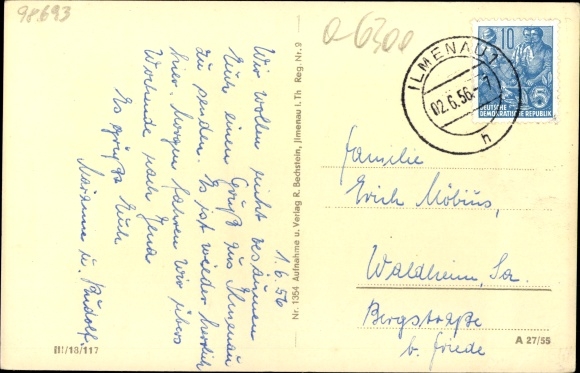 98.693
1.6.56
Wir wollen nicht versäumen
Euch einen Gruß aus Ilmenau
zu senden. Es ist wieder herrlich
hier. Morgen fahren wir übers
Wochende nach Jena
Es grüßt Euch
Marianne u. Rudolf.
III/18/117
Nr. 1354 Aufnahme u. Verlag R. Bechstein, Jlmenau i. Th Reg. Nr. 9
a 6300
ILMENAU 1
02.6.56
h
10
5
DEUTSCHE
DEMOKRATISCHE REPUBLIK
Familie
Erich Möbius,
Waldheim, Sa.
Bergstraße
b. Friede
A 27/55